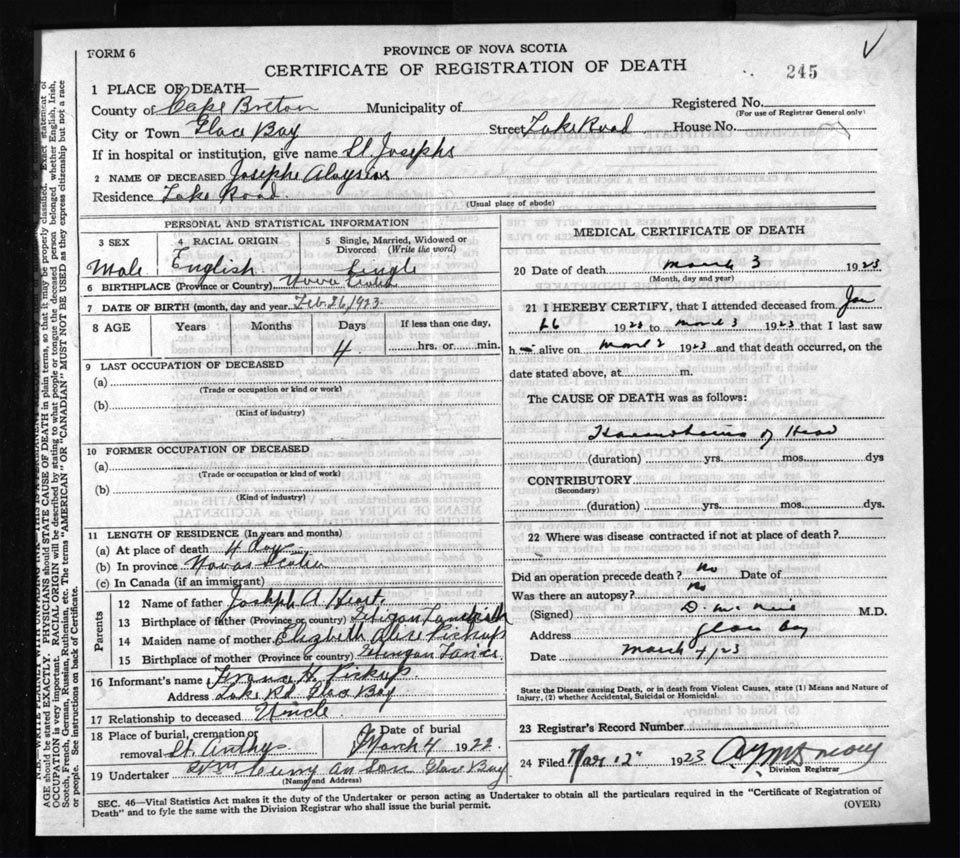 FORM 6
PROVINCE OF NOVA SCOTIA
CERTIFICATE OF REGISTRATION OF DEATH
245
1 PLACE OF DEATH—
County of Cape Breton Municipality of Registered No.
(For use of Registrar General only)
City or Town Glace Bay Street Lake Road House No.
If in hospital or institution, give name St Josephs
2 NAME OF DECEASED Josephe Aloysius
Residence Lake Road.
(Usual place of abode)
PERSONAL AND STATISTICAL INFORMATION
3 SEX 4 RACIAL ORIGIN 5 Single, Married, Widowed or Divorced (Write the word)
Male English Single
6 BIRTHPLACE (Province or Country) Nova Scotia
7 DATE OF BIRTH (month, day and year Feb. 26, 1923
8 AGE Years Months Days If less than one day,
4 hrs. or min.
9 LAST OCCUPATION OF DECEASED
(a)
(Trade or occupation or kind or work)
(b)
(Kind of industry)
10 FORMER OCCUPATION OF DECEASED
(a)
(Trade or occupation or kind of work)
(b)
(Kind of industry)
11 LENGTH OF RESIDENCE (In years and months)
(a) At place of death 4 Day
(b) In province Nova Scotia
(c) In Canada (if an immigrant)
Parents
12 Name of father Joseph A.
13 Birthplace of father (Province or country)
14 Maiden name of mother Alice Pickup
15 Birthplace of mother (Province or country)
16 Informant's name H. Pickup
Address Lake Rd Glace Bay
17 Relationship to deceased Uncle.
18 Place of burial, cremation or removal St. Anthys Date of burial March 4 1922
19 Undertaker Curry an Son Glace Bay
(Name and Address)
MEDICAL CERTIFICATE OF DEATH
20 Date of death March 3 1923
(Month, day and year)
21 I HEREBY CERTIFY, that I attended deceased from
26 1923 to March 3 1923 that I last saw
h alive on March 2 1923 and that death occurred, on the
date stated above, at m.
The CAUSE OF DEATH was as follows:
of Head
(duration) yrs. mos. dys
CONTRIBUTORY
(Secondary)
(duration) yrs. mos. dys.
22 Where was disease contracted if not at place of death?
Did an operation precede death? No Date of
Was there an autopsy? No
(Signed) M.D.
Address Glace Bay
Date March 4/23
State the Disease causing Death, or in death from Violent Causes, state (1) Means and Nature of
Injury, (2) whether Accidental, Suicidal or Homicidal.
23 Registrar's Record Number
24 Filed Mar 12" 1923
Division Registrar
SEC. 46—Vital Statistics Act makes it the duty of the Undertaker or person acting as Undertaker to obtain all the particulars required in the "Certificate of Registration of
Death" and to fyle the same with the Division Registrar who shall issue the burial permit.
(OVER)
AGE should be stated EXACTLY. PHYSICIANS should STATE CAUSE OF DEATH in plain terms, so that it may be properly classified. Exact statement of
OCCUPATION is very important. RACIAL ORIGIN will be described by stating to what people or tongue the deceased person belonged whether English, Irish,
Scotch, French, German, Russian, Ruthenian, etc. The terms "AMERICAN" OR "CANADIAN" MUST NOT BE USED as they express citizenship but not a race
or people. See instructions on back of Certificate.